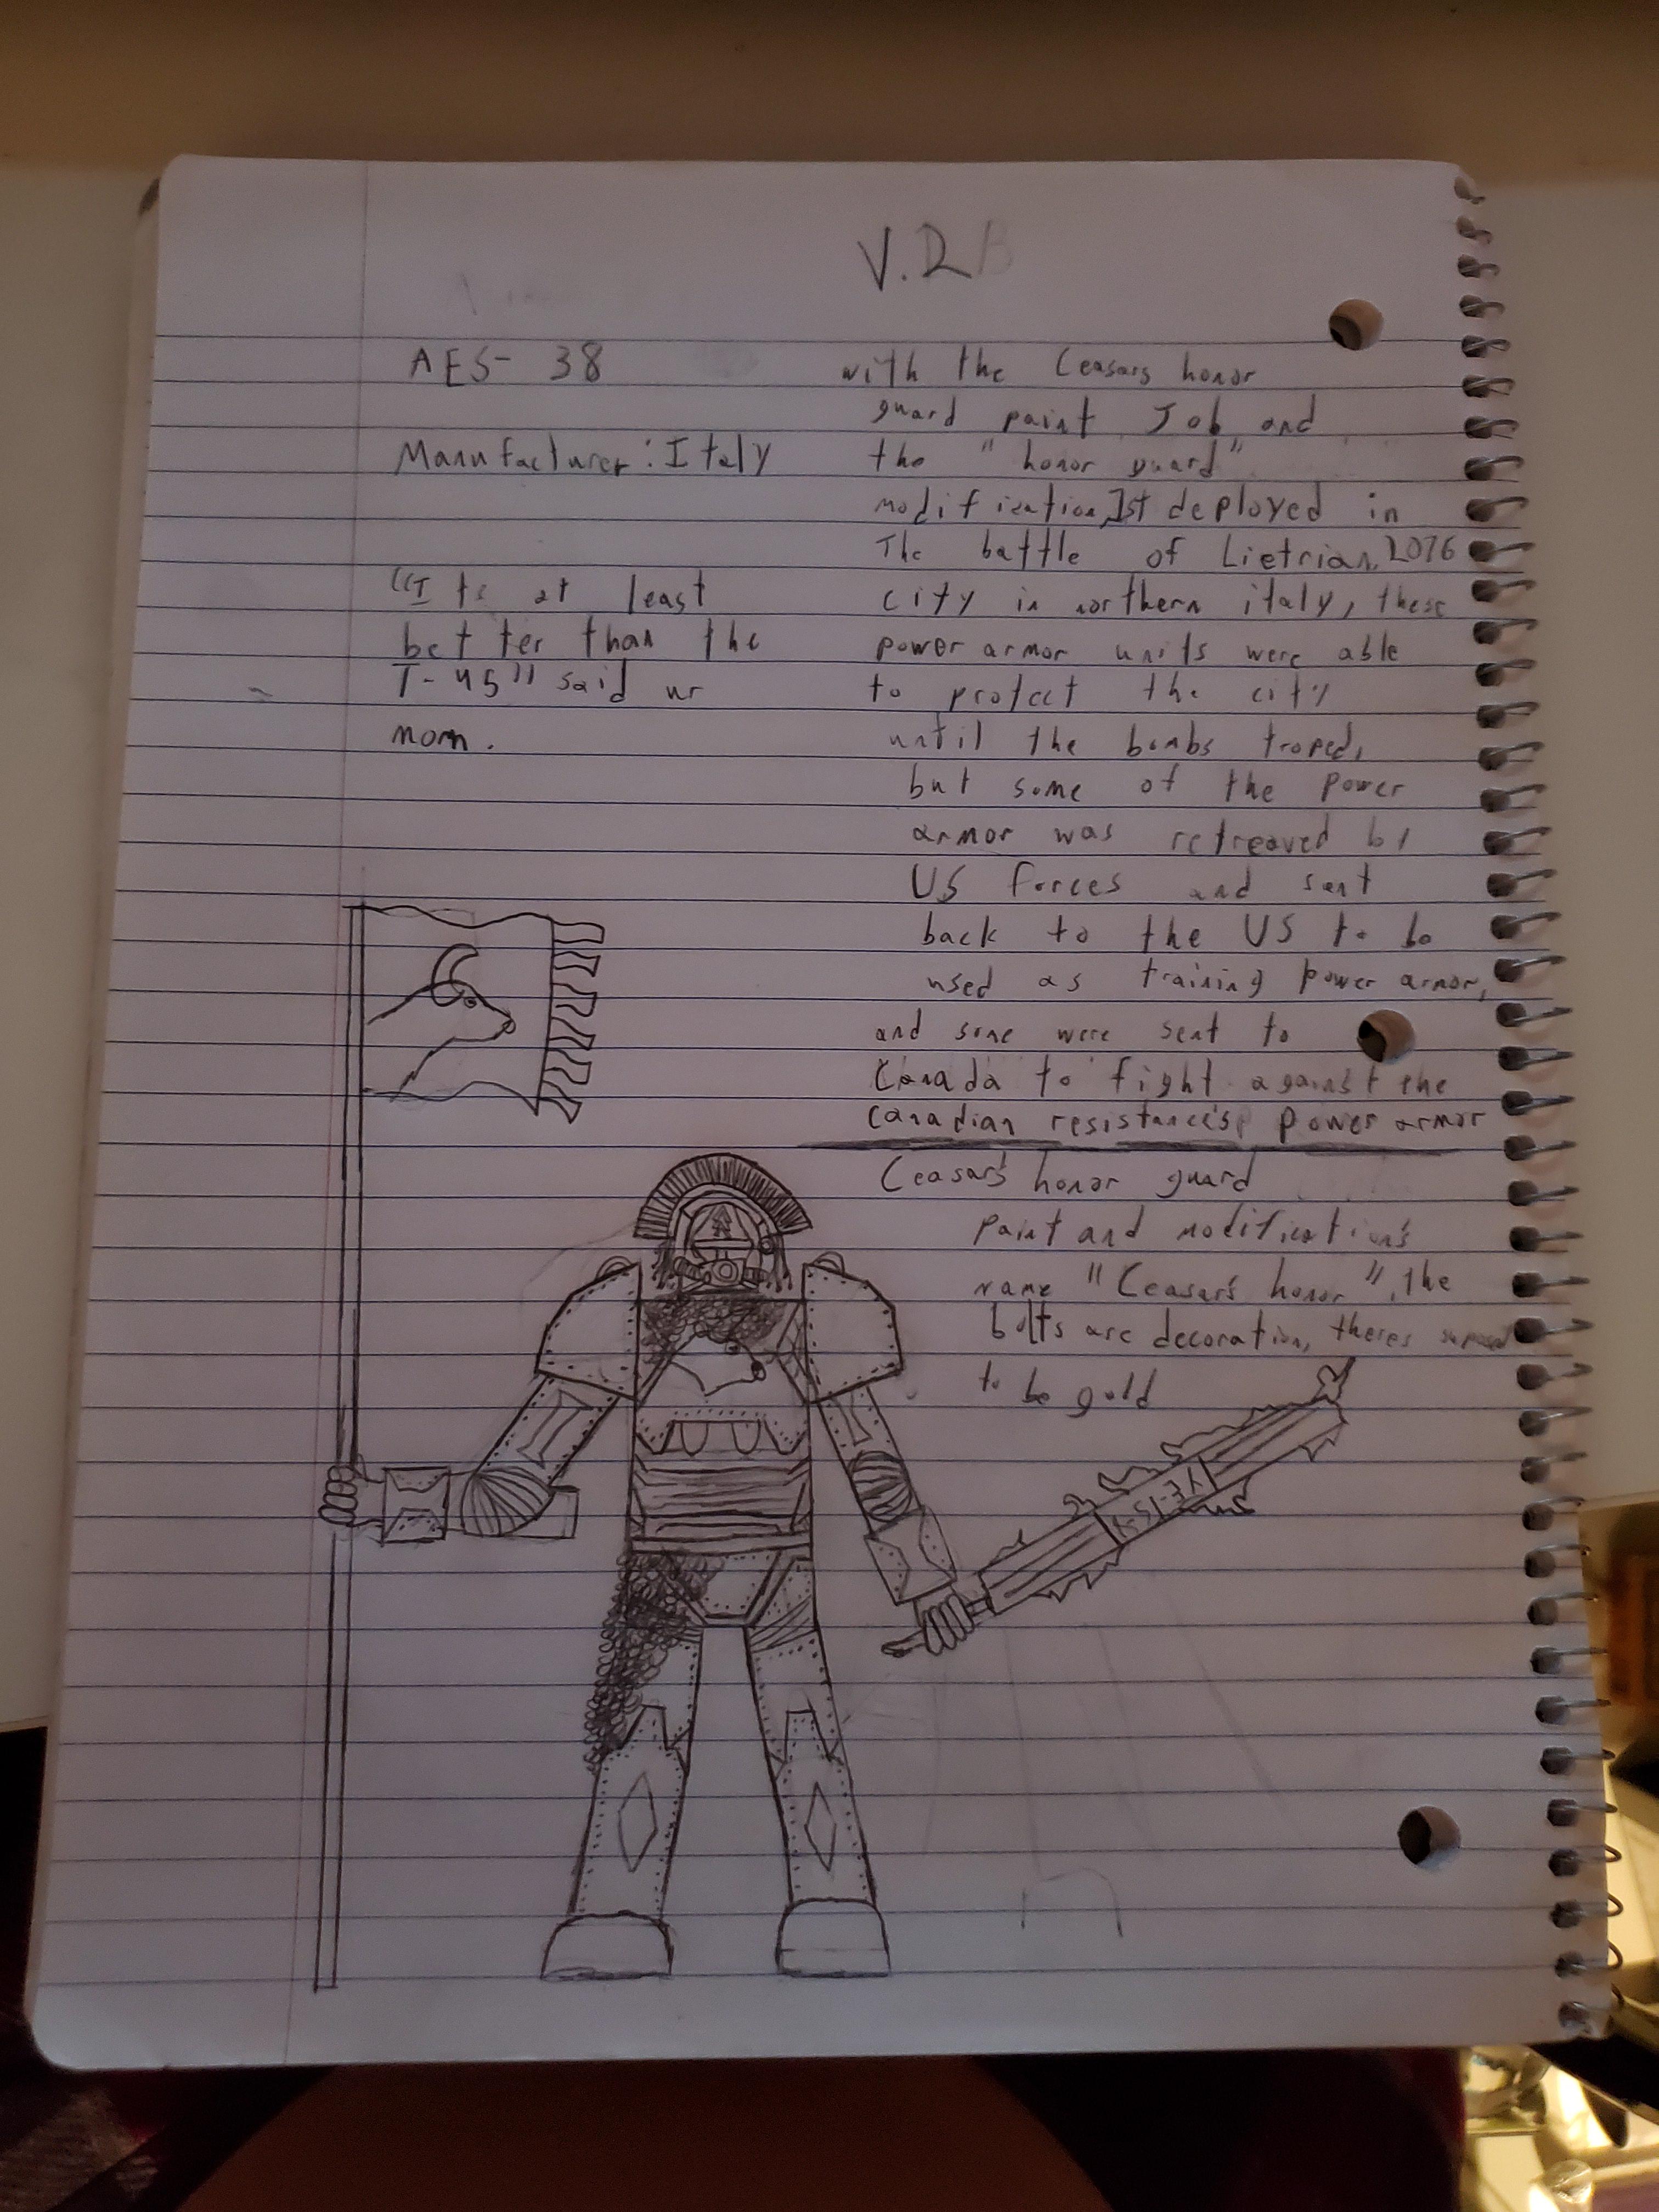 V.2
AES- 38
Manufacturer: Italy
"Its at least
better than the
T-45" said ur
mom.
with the Ceasars honor
guard paint Job and
the "honor guard"
modifization, 1st deployed in
The battle of Lietrian, 2076
city in northern italy, these
power armor units were able
to protect the city
until the bombs troped,
but some of the power
armor was retreaved by
US forces and sent
back to the US to be
used as training power armor,
and some were sent to
Canada to fight against the
canadian resistance's power armor
Ceasar's honor guard
paint and modification's
name "Ceasar's honor", the
bolts are decoration, theres suposed
to be gold